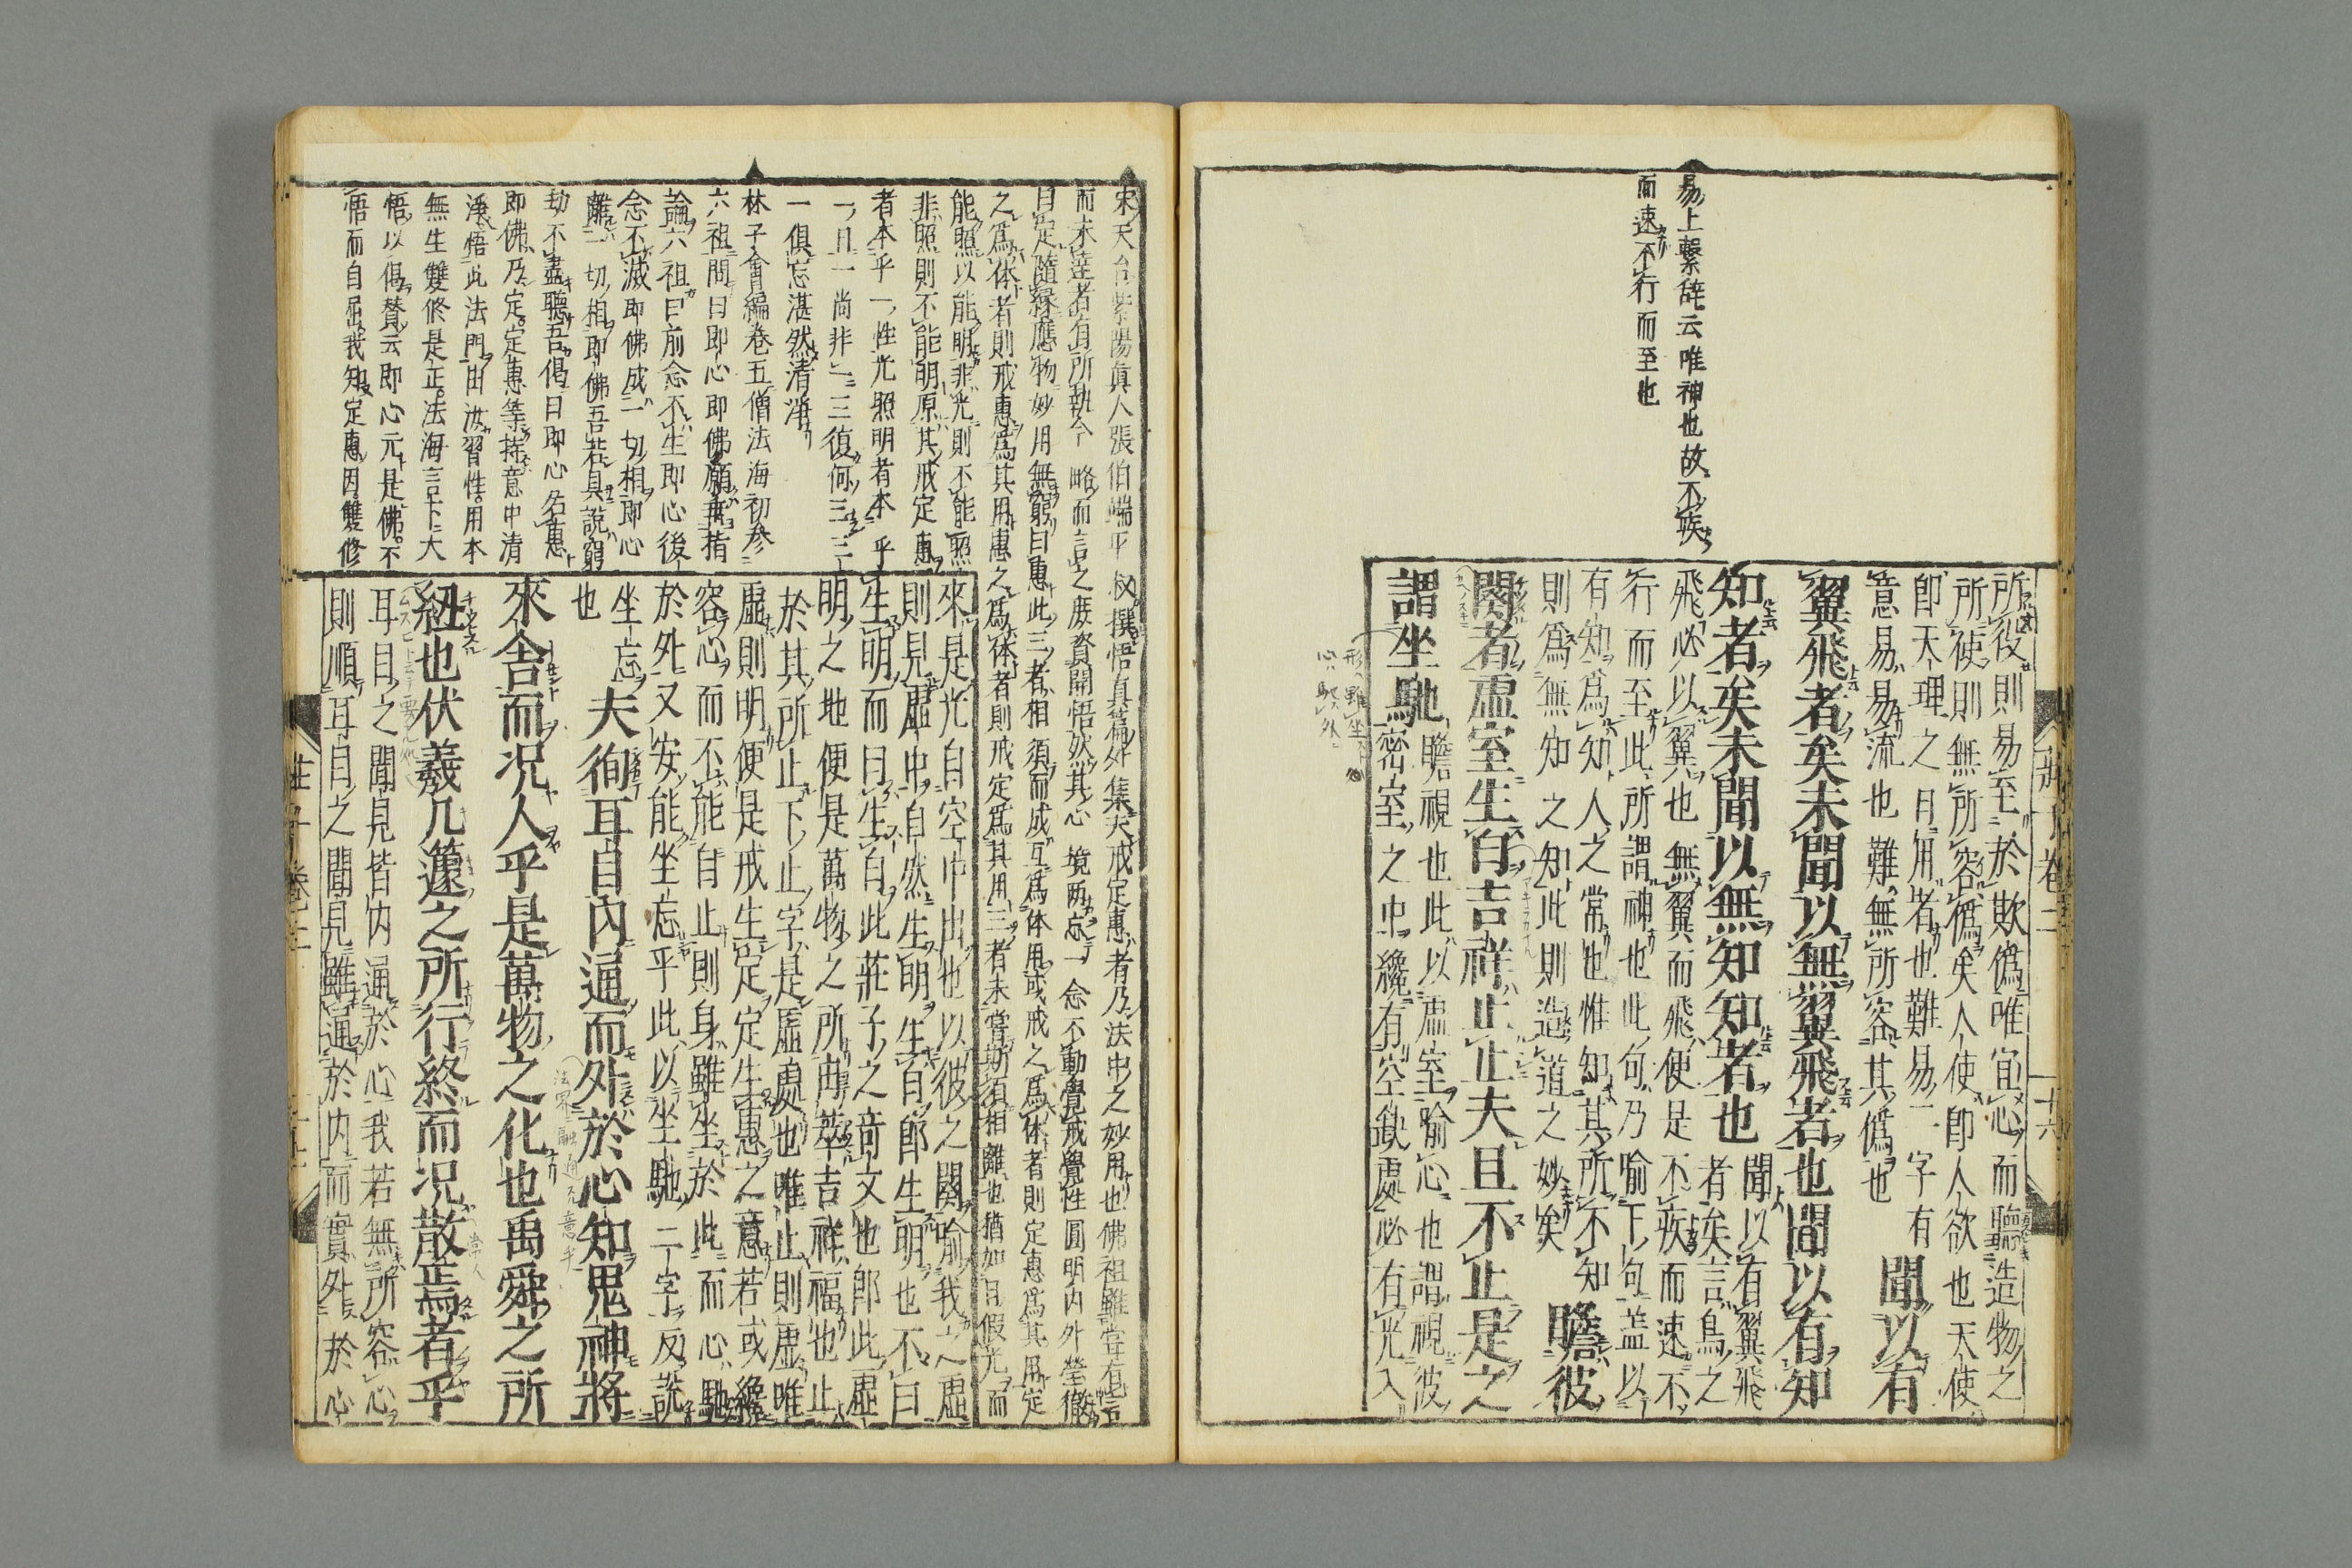 易上繫辭云唯神也故不疾
而速不行而至也
所役則易至於欺偽唯宜心而聽造物之
所使則無所容偽矣人使即人欲也天使
即天理之日用者也難易二字有
意易易流也難無所容其偽也
聞以有
翼飛者矣未聞以無翼飛者也聞以有知
知者矣未聞以無知知者也
聞以有翼飛
者矣言鳥之
飛必以翼也無翼而飛便是不疾而速不
行而至此所謂神也此句乃喻下句蓋以
有知為知人之常也惟知其所不知
則為無知之知此則造道之妙矣
瞻彼
闋者虛室生白吉祥止止夫且不止是之
謂坐馳
瞻視也此以虛室喻心也謂視彼
密室之中纔有空缺處必有光入
形雖坐
心馳外
莊子卷二
十六
宋天台紫陽真人張伯端平叔撰悟真篇外集夫戒定惠者乃法中之妙用也佛祖雖嘗有言
而未達者有所執今略而言之庶資開悟然其心境兩忘一念不動曰戒覺性圓明內外瑩徹
曰定隨緣應物妙用無窮曰惠此三者相須而成互為体用或戒之為体者則定惠為其用定
之為体者則戒惠為其用惠之為体者則戒定為其用三者未嘗斯須相離也猶如日假光而
能照以能明非光則不能照
非照則不能明原其戒定惠
者本乎一性光照明者本乎
一日一尚非一三復何三三
一俱忘湛然清淨
林子會編卷五僧法海初參
六祖問曰即心即佛願垂指
論六祖曰前念不生即心後
念不滅即佛成一切相即心
離一切相即佛吾若具說窮
劫不盡聽吾偈曰即心名惠
即佛乃定定惠等持意中清
淨悟此法門由汝習性用本
無生雙修是正法海言下大
悟以偈贊云即心元是佛不
悟而自屈我知定惠因雙修
來是光自空中出也以彼之闋喻我之虛
則見虛中自然生明生白即生明也不曰
生明而曰生白此莊子之奇文也即此虛
明之地便是萬物之所由萃吉祥福也止
於其所止下止字是虛處也唯止則虛唯
虛則明便是戒生定定生惠之意若或纔
容心而不能自止則身雖坐於此而心馳
於外又安能坐忘乎此以坐馳二字反說
坐忘
也
夫徇耳目內通而外於心知鬼神將
來舍而況人乎是萬物之化也禹舜之所
紐也伏羲几蘧之所行終而況散焉者乎
耳目之聞見皆內通於心我若無所容心
則順耳目之聞見雖通於內而實外於心
莊子卷二